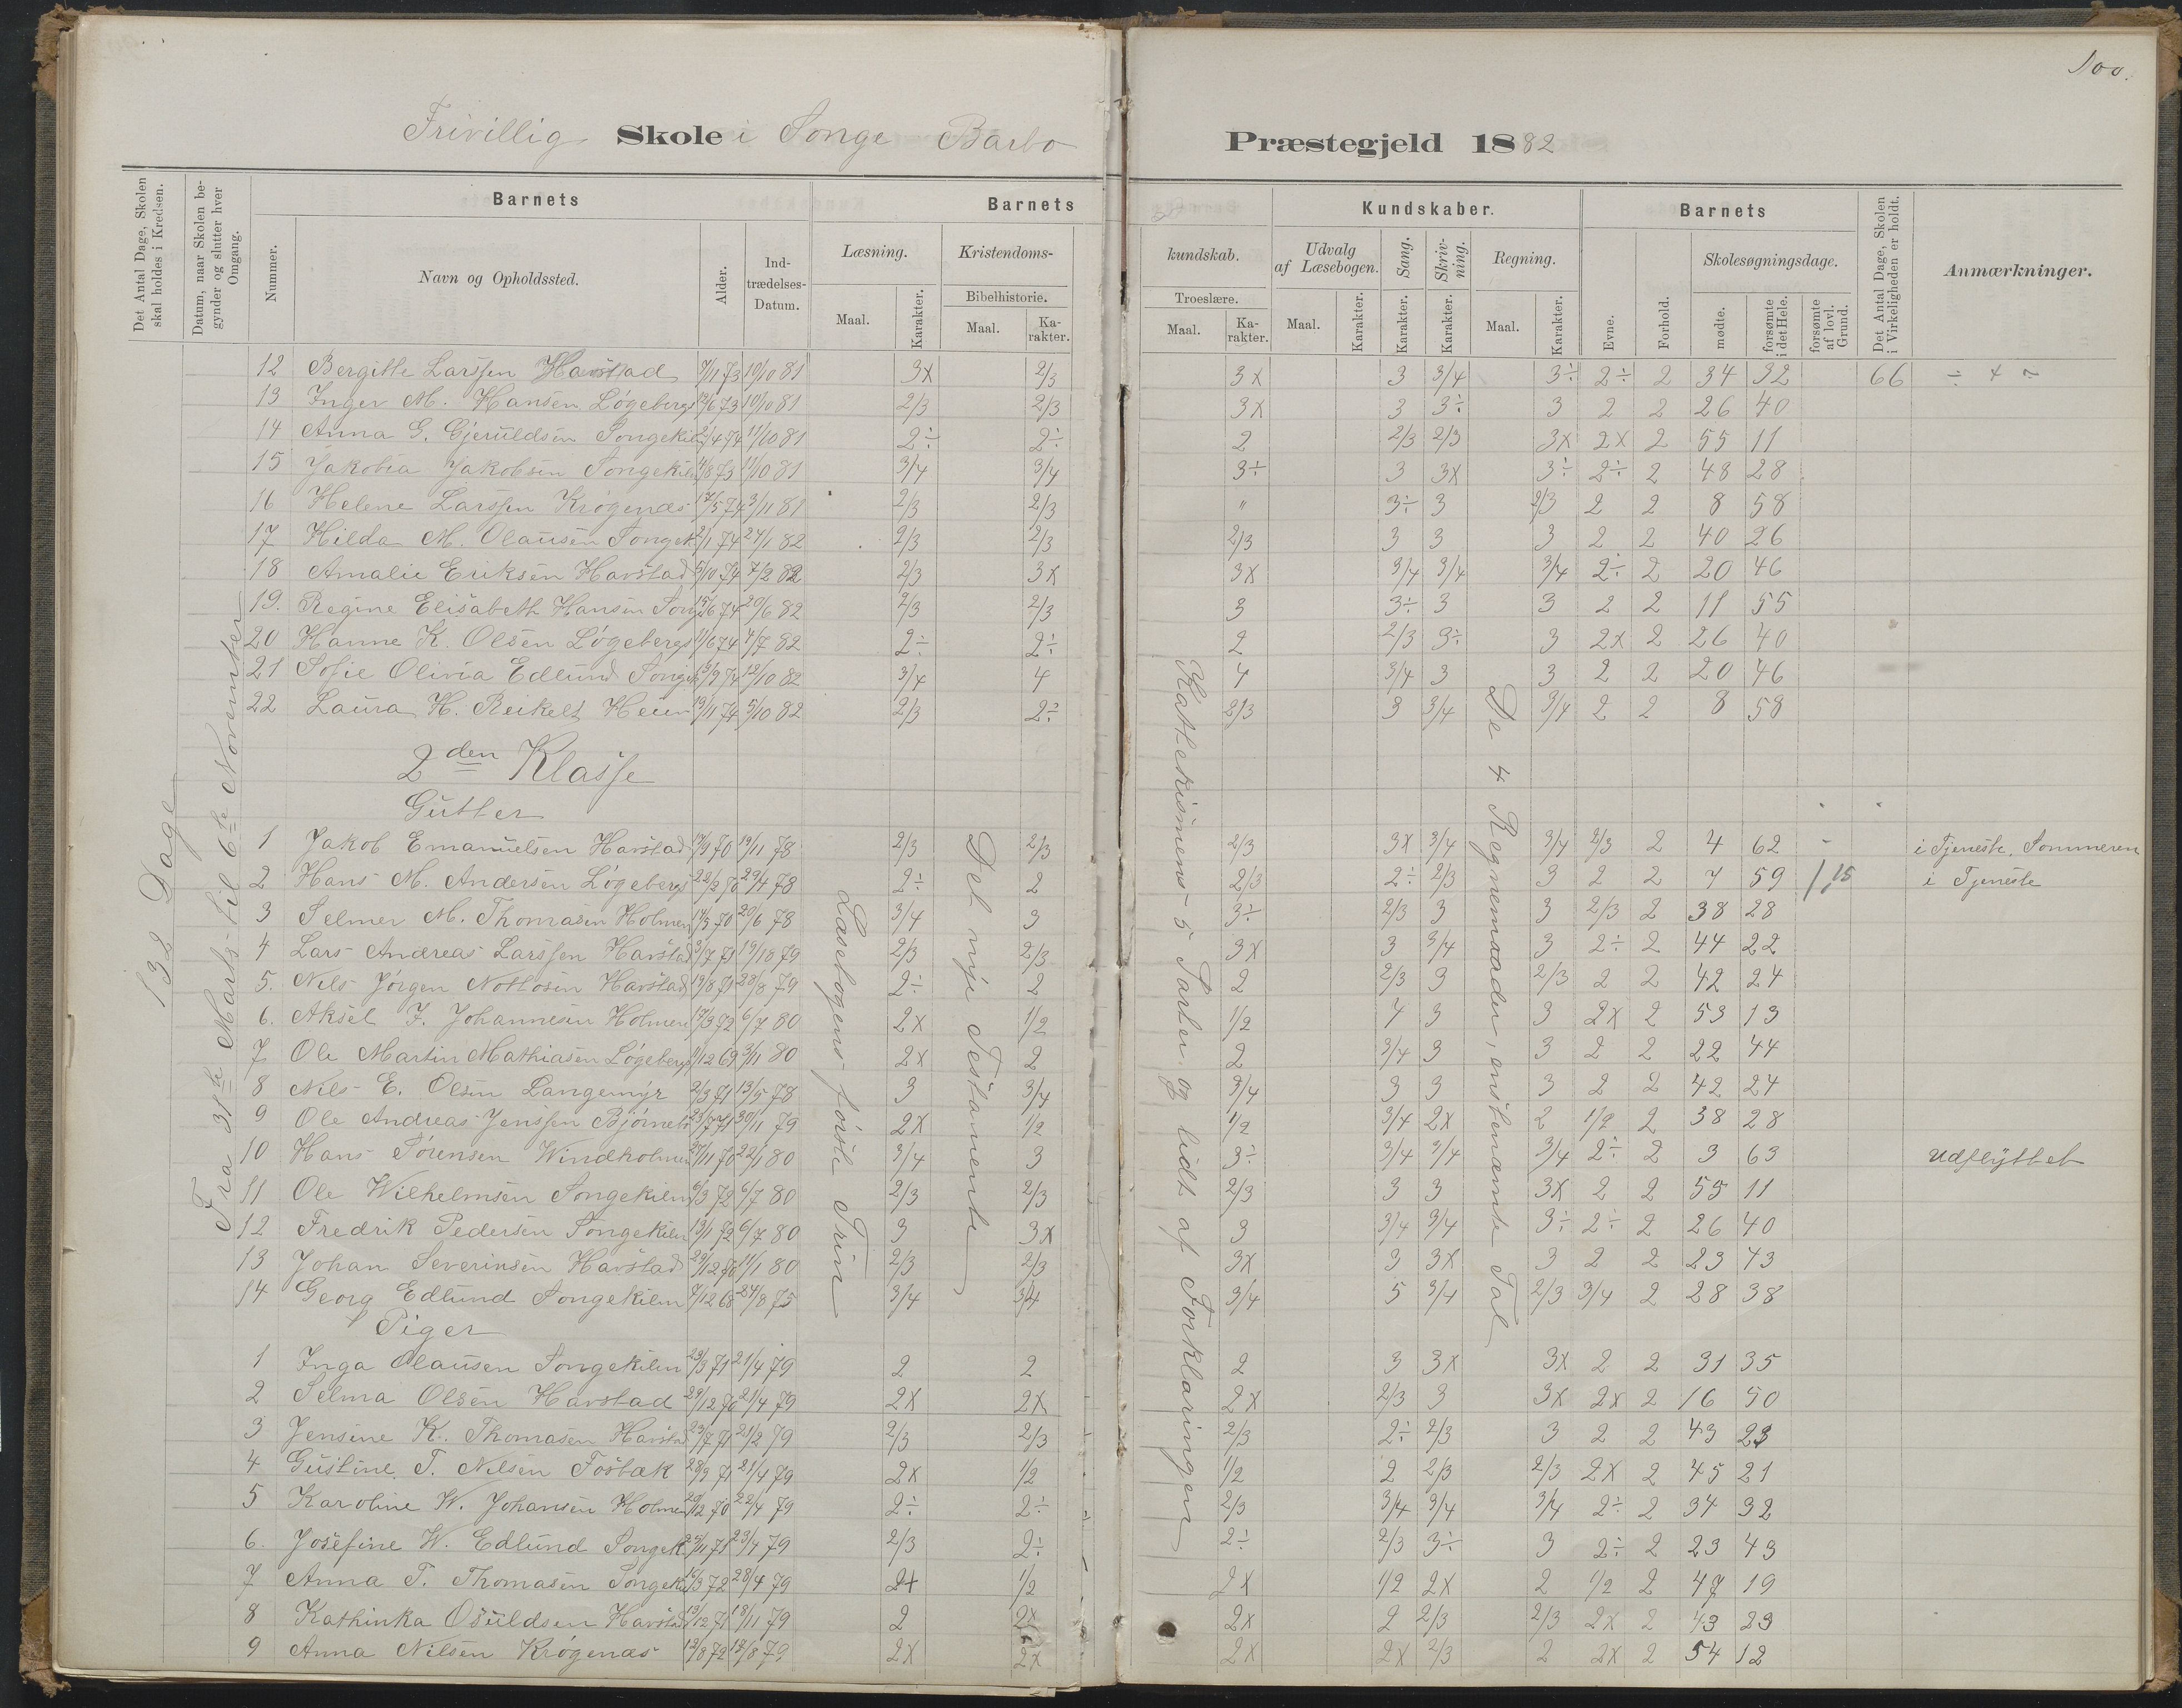 100.
Frivillig Skole i Songe Barbo Præstegjeld 1882
Det Antal Dage, Skolen skal holdes i Kredsen.
Datum, naar Skolen begynder og slutter hver Omgang.
Barnets
Nummer.
Navn og Opholdssted.
Alder.
Indtrædelses-Datum.
Barnets
Læsning.
Maal.
Karakter.
Kristendoms-
Bibelhistorie.
Maal.
Karakter.
kundskab.
Troeslære.
Maal.
Karakter.
Kundskaber.
Udvalg af Læsebogen.
Maal.
Karakter.
Sang.
Karakter.
Skrivning.
Karakter.
Regning.
Maal.
Karakter.
Barnets
Evne.
Forhold.
Skolesøgningsdage.
mødte.
forsømte i det Hele.
forsømte af lovl. Grund.
Det Antal Dage, Skolen i Virkeligheden er holdt.
Anmærkninger.
132 Dage
Fra 31te Marts til 6te November
12 Bergitte Larssen Havstad 7/11 73 10/10 81 3x 2/3 3x 3 3/4 3÷ 2÷ 2 34 32 66
13 Inger M. Hansen Løgeberg 6 73 10/10 81 2/3 2/3 3x 3 3÷ 3 2 2 26 40
14 Anna G. Gjeruldsen Songekil 4 74 11/10 81 2÷ 2÷ 2 2/3 2/3 3x 2x 2 55 11
15 Jakobia Jakobsen Songekilen 8 73 11/10 81 3/4 3/4 3÷ 3 3x 3÷ 2÷ 2 48 28
16 Helene Larssen Krøgenæs 17/5 74 3/11 81 2/3 2/3 " 3÷ 3 2/3 2 2 8 58
17 Hilda M. Olausen Songek. 2/1 74 24/1 82 2/3 2/3 2/3 3 3 3 2 2 40 26
18 Amalie Eriksen Havstad 5/10 74 7/2 82 2/3 3x 3x 3/4 3/4 3/4 2÷ 2 20 46
19. Regine Elisabeth Hansen Song 15/6 74 20/6 82 2/3 2/3 3 3÷ 3 3 2 2 11 55
20 Hanne K. Olsen Løgeberg 11/6 74 4/7 82 2÷ 2÷ 2 2/3 3÷ 3 2x 2 26 40
21 Sofie Olivia Edlund Songek 9 74 12/10 82 3/4 4 4 3/4 3 3 2 2 20 46
22 Laura H. Reikelt Heien 19/11 74 5/10 82 2/3 2÷ 2/3 3 3/4 3/4 2 2 8 58
2den Klasse
Gutter
Læsebogens første Trin
Det nye Testamente
Kathekismens 5 Parter og lidt af Forklaringen
De 4 Regnemaader, enstenævnte Tal
1 Jakob Emanuelsen Havstad 17/9 70 19/11 78 2/3 2/3 2/3 3x 3/4 3/4 2/3 2 4 62 - i Tjeneste Sommeren
2 Hans M. Andersen Løgeberg 22/2 70 29/4 78 2÷ 2 2/3 2÷ 2/3 3 2 2 7 59 i Tjeneste
3 Selmer M. Thomasen Holmen 14/3 70 20/6 78 3/4 3 3÷ 2/3 3 3 2/3 2 38 28
4 Lars Andreas Larssen Havstad 3/7 71 19/10 79 2/3 2/3 3x 3 3/4 3 2÷ 2 44 22
5. Nils Jørgen Nottosen Havstad 19/8 71 28/8 79 2÷ 2 2 2/3 3 2/3 2 2 42 24
6. Aksel F. Johannesen Holmen 17/3 72 6/7 80 2x 1/2 1/2 4 3 3 2x 2 53 13
7 Ole Martin Mathiasen Løgeberg 12 69 3/11 80 2x 2 2 3/4 3 3 2 2 22 44
8 Nils E. Olsen Langemyr 2/3 71 13/5 78 3 3/4 3/4 3 3 3 2 2 42 24
9 Ole Andreas Jenssen Bjørneb 23/7 71 30/1 79 2x 1/2 1/2 3/4 2x 2 1/2 2 38 28
10 Hans Sørensen Windholmen 27/11 70 22/1 80 3/4 3 3÷ 3/4 3/4 3/4 2÷ 2 3 63 Udflyttet
11 Ole Wilhelmsen Songekilen 6/3 72 6/7 80 2/3 2/3 2/3 3 3 3x 2 2 55 11
12 Fredrik Pedersen Songekilen 13/1 72 6/7 80 3 3x 3 3/4 3/4 3÷ 2÷ 2 26 40
13 Johan Severinsen Havstad 29/12 70 11/1 80 2/3 2/3 3x 3 3x 3 2 2 23 43
14 Georg Edlund Songekilen 12 68 24/8 75 3/4 3/4 3/4 5 3/4 2/3 3/4 2 28 38
Piger
1 Inga Olausen Songekilen 29/3 71 21/4 79 2 2 2 3 3x 3x 2 2 31 35
2 Selma Olsen Havstad 29/12 70 21/4 79 2x 2x 2x 2/3 3 3x 2x 2 16 50
3 Jensine K. Thomasen Havstad 23/7 71 21/2 79 2/3 2/3 2/3 2÷ 2/3 3 2 2 43 23
4 Gustine T. Nilsen Fosbæk 28/9 71 21/4 79 2x 1/2 1/2 2 2/3 2/3 2x 2 45 21
5 Karoline W. Johansen Holmen 20/12 70 22/4 79 2÷ 2÷ 2/3 3/4 3/4 3/4 2÷ 2 34 32
6. Josefine W. Edlund Songek. 25/11 71 23/4 79 2/3 2÷ 2÷ 2/3 3÷ 3 2÷ 2 23 43
7 Anna T. Thomasen Songekil 16/3 72 28/4 79 2x 1/2 2x 1/2 2x 2 1/2 2 47 19
8 Kathinka Osuldsen Havstad 13/12 71 18/11 79 2 2x 2x 2 2/3 2/3 2x 2 43 23
9 Anna Nilsen Krøgenæs 12/8 72 19/8 79 2x 2x 2x 2x 2/3 2 2x 2 54 12